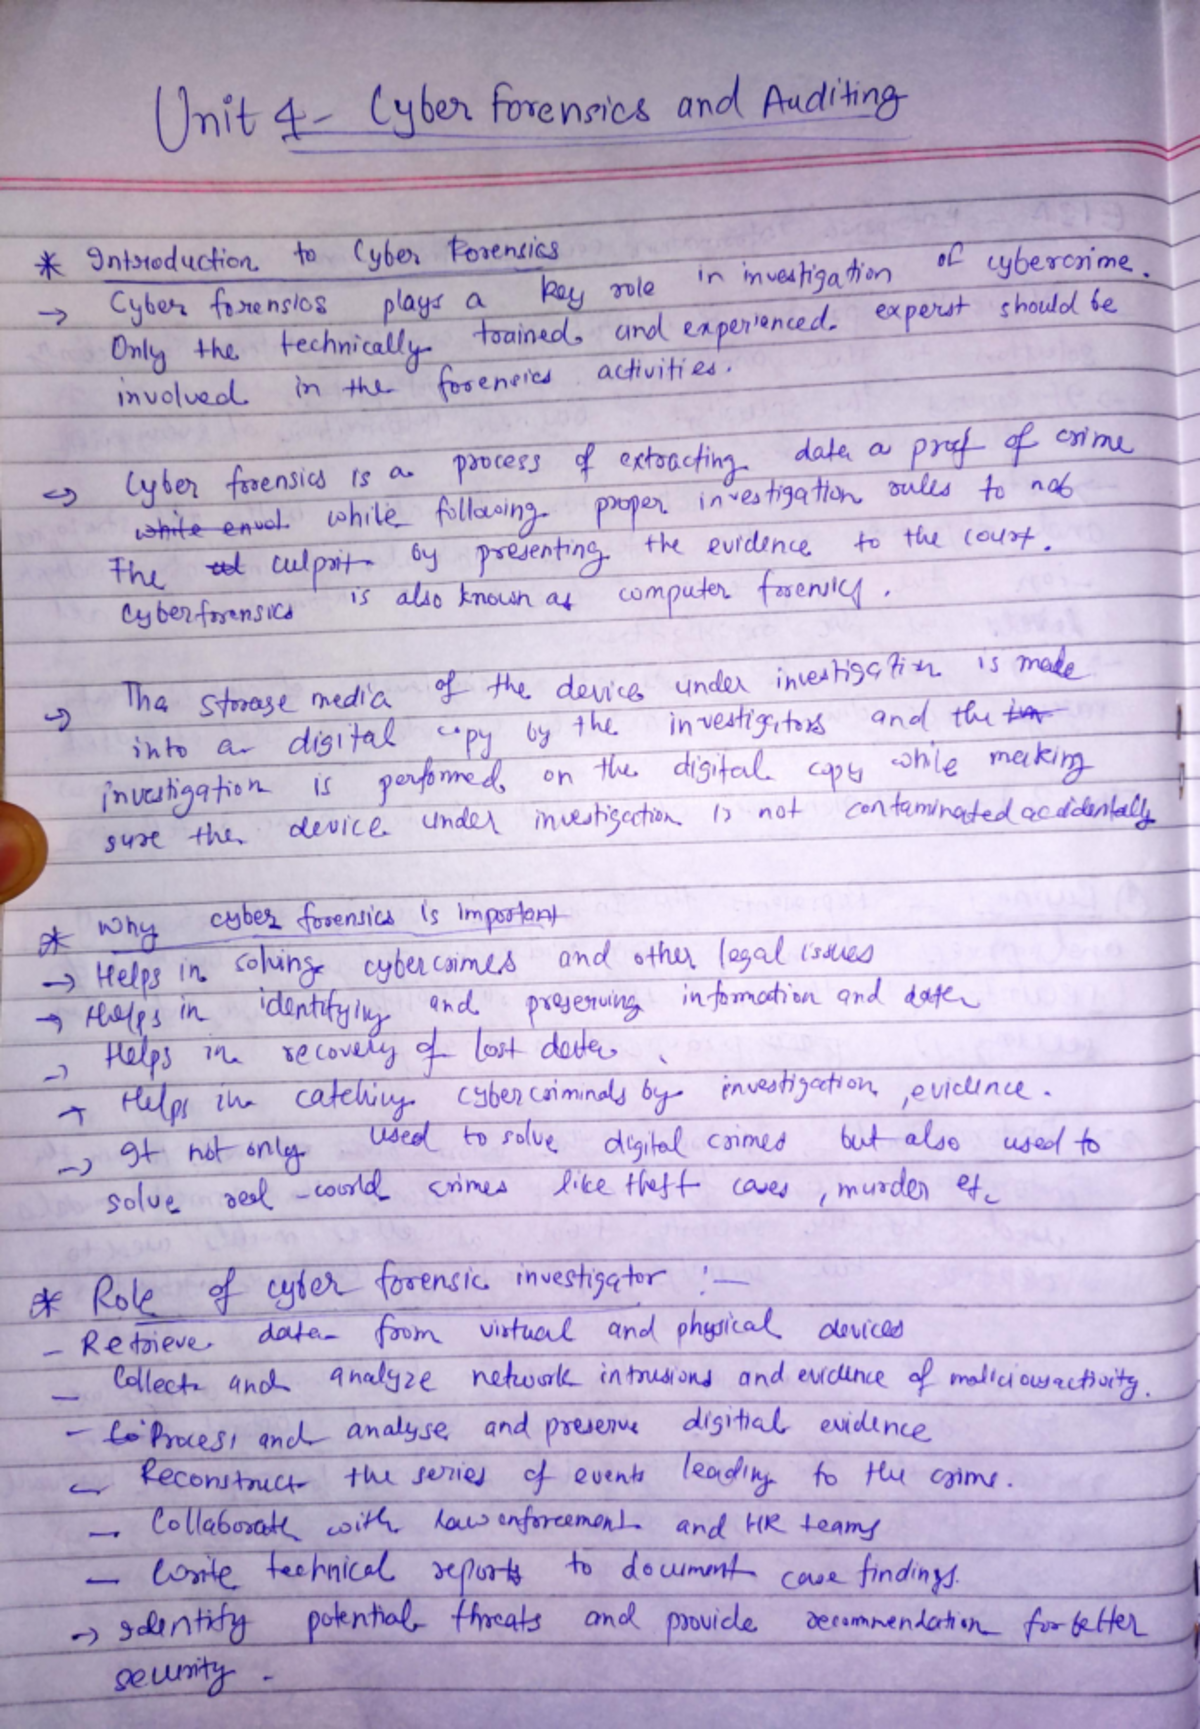 Unit 4 - Cyber forensics and Auditing
* Introduction to Cyber Forensics
→ Cyber forensics plays a key role in investigation of cybercrime.
Only the technically trained and experienced experst should be
involved in the forensics activities.
→ Cyber forensics is a process of extracting data a proof of crime
while following proper investigation rules to nab
The culprit by presenting the evidence to the court.
Cyberforensics is also known as computer forensics.
→ Tha storage media of the device under investigation is made
into a digital copy by the investigators and the
investigation is performed on the digital copy while making
sure the device under investigation is not contaminated accidentally
* Why cyber forensics is important
→ Helps in solving cybercrimes and other legal issues
→ Helps in identifying and preserving information and data
→ Helps in recovery of lost data.
→ Helps in catching cybercriminals by investigation, evidence.
→ It not only used to solve digital crimes but also used to
solve real-world crimes like theft cases, murder etc
* Role of cyber forensic investigator :-
- Retrieve data from virtual and physical devices
- Collect and analyze network intrusions and evidence of malicious activity.
- Process and analyse and preserve digitial evidence
- Reconstruct the series of events leading to the crime.
- Collaborate with law enforcement and HR teams
- Write technical reports to document case findings.
→ Identify potential threats and provide recommendation for better
security.